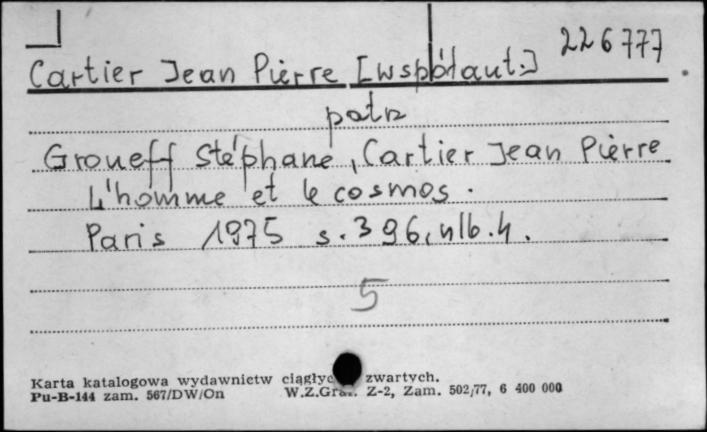 226777
Cartier Jean Pierre [współaut.]
patrz
Groueff Stéphane, Cartier Jean Pierre
L'homme et le cosmos.
Paris 1975 s. 396, nlb. 4.
5
Karta katalogowa wydawnictw zwartych.
Pu-B-144 zam. 567/DW/On W.Z.Graf. Z-2, Zam. 502/77, 6 400 000